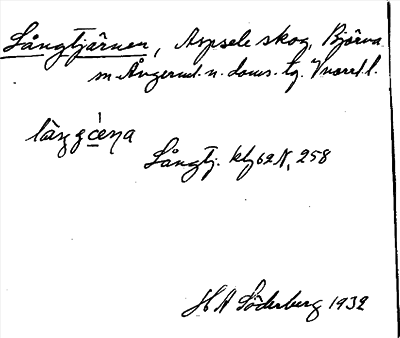 Långtjärnen, Aspsele skog, Björna
m. Ångerml. n. doms. tg. Vnorrl. l.
làŋgćeṇa
Långtj. kbl 62 N, 258
H A Söderberg 1932